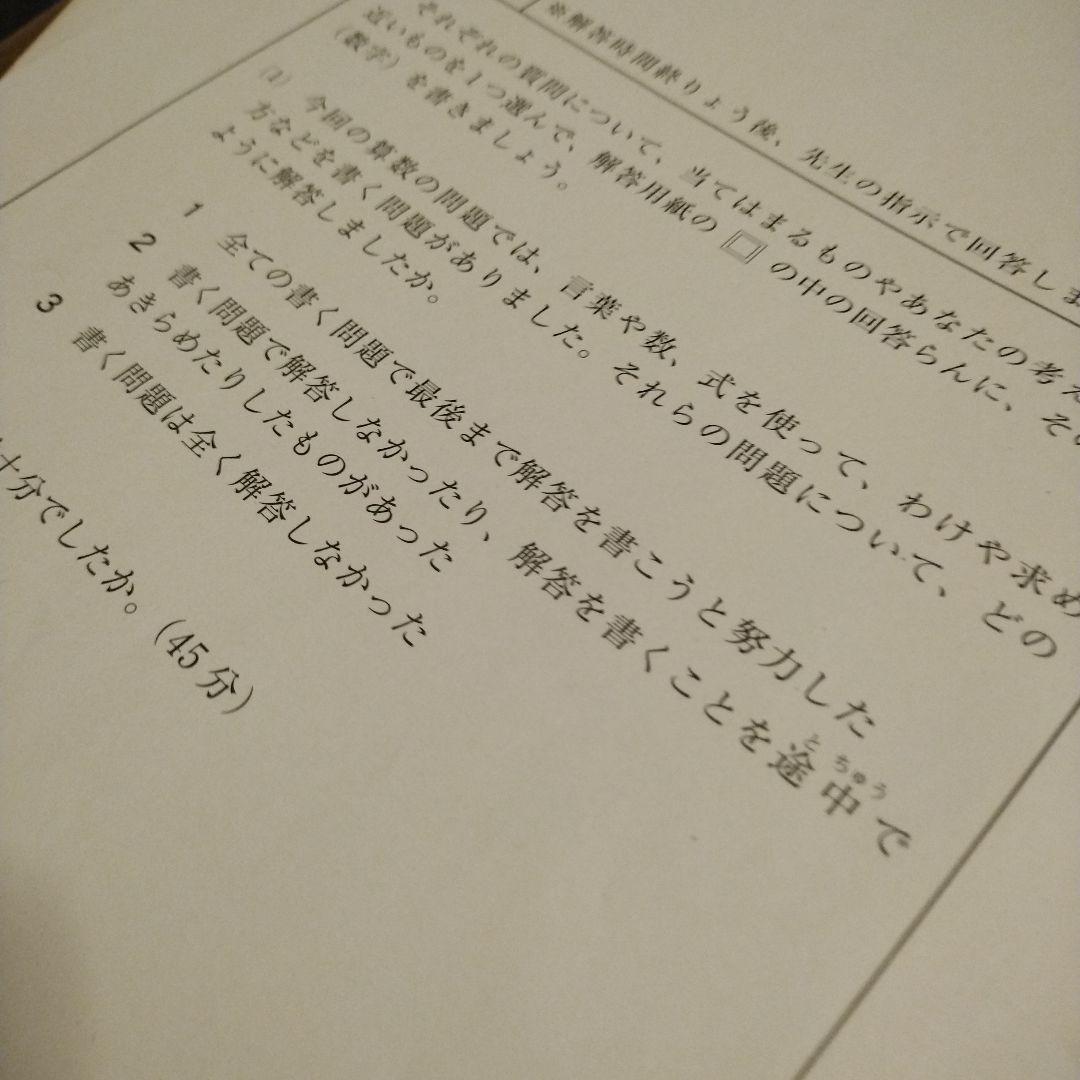 ※解答時間終りょう後、先生の指示で回答しま
それぞれの質問について、当てはまるものやあなたの考え
近いものを1つ選んで、解答用紙の の中の回答らんに、その
(数字)を書きましょう。
(1) 今回の算数の問題では、言葉や数、式を使って、わけや求め
方などを書く問題がありました。それらの問題について、どの
ように解答しましたか。
1 全ての書く問題で最後まで解答を書こうと努力した
2 書く問題で解答しなかったり、解答を書くことを途中で
とちゅう
あきらめたりしたものがあった
3 書く問題は全く解答しなかった
十分でしたか。(45分)